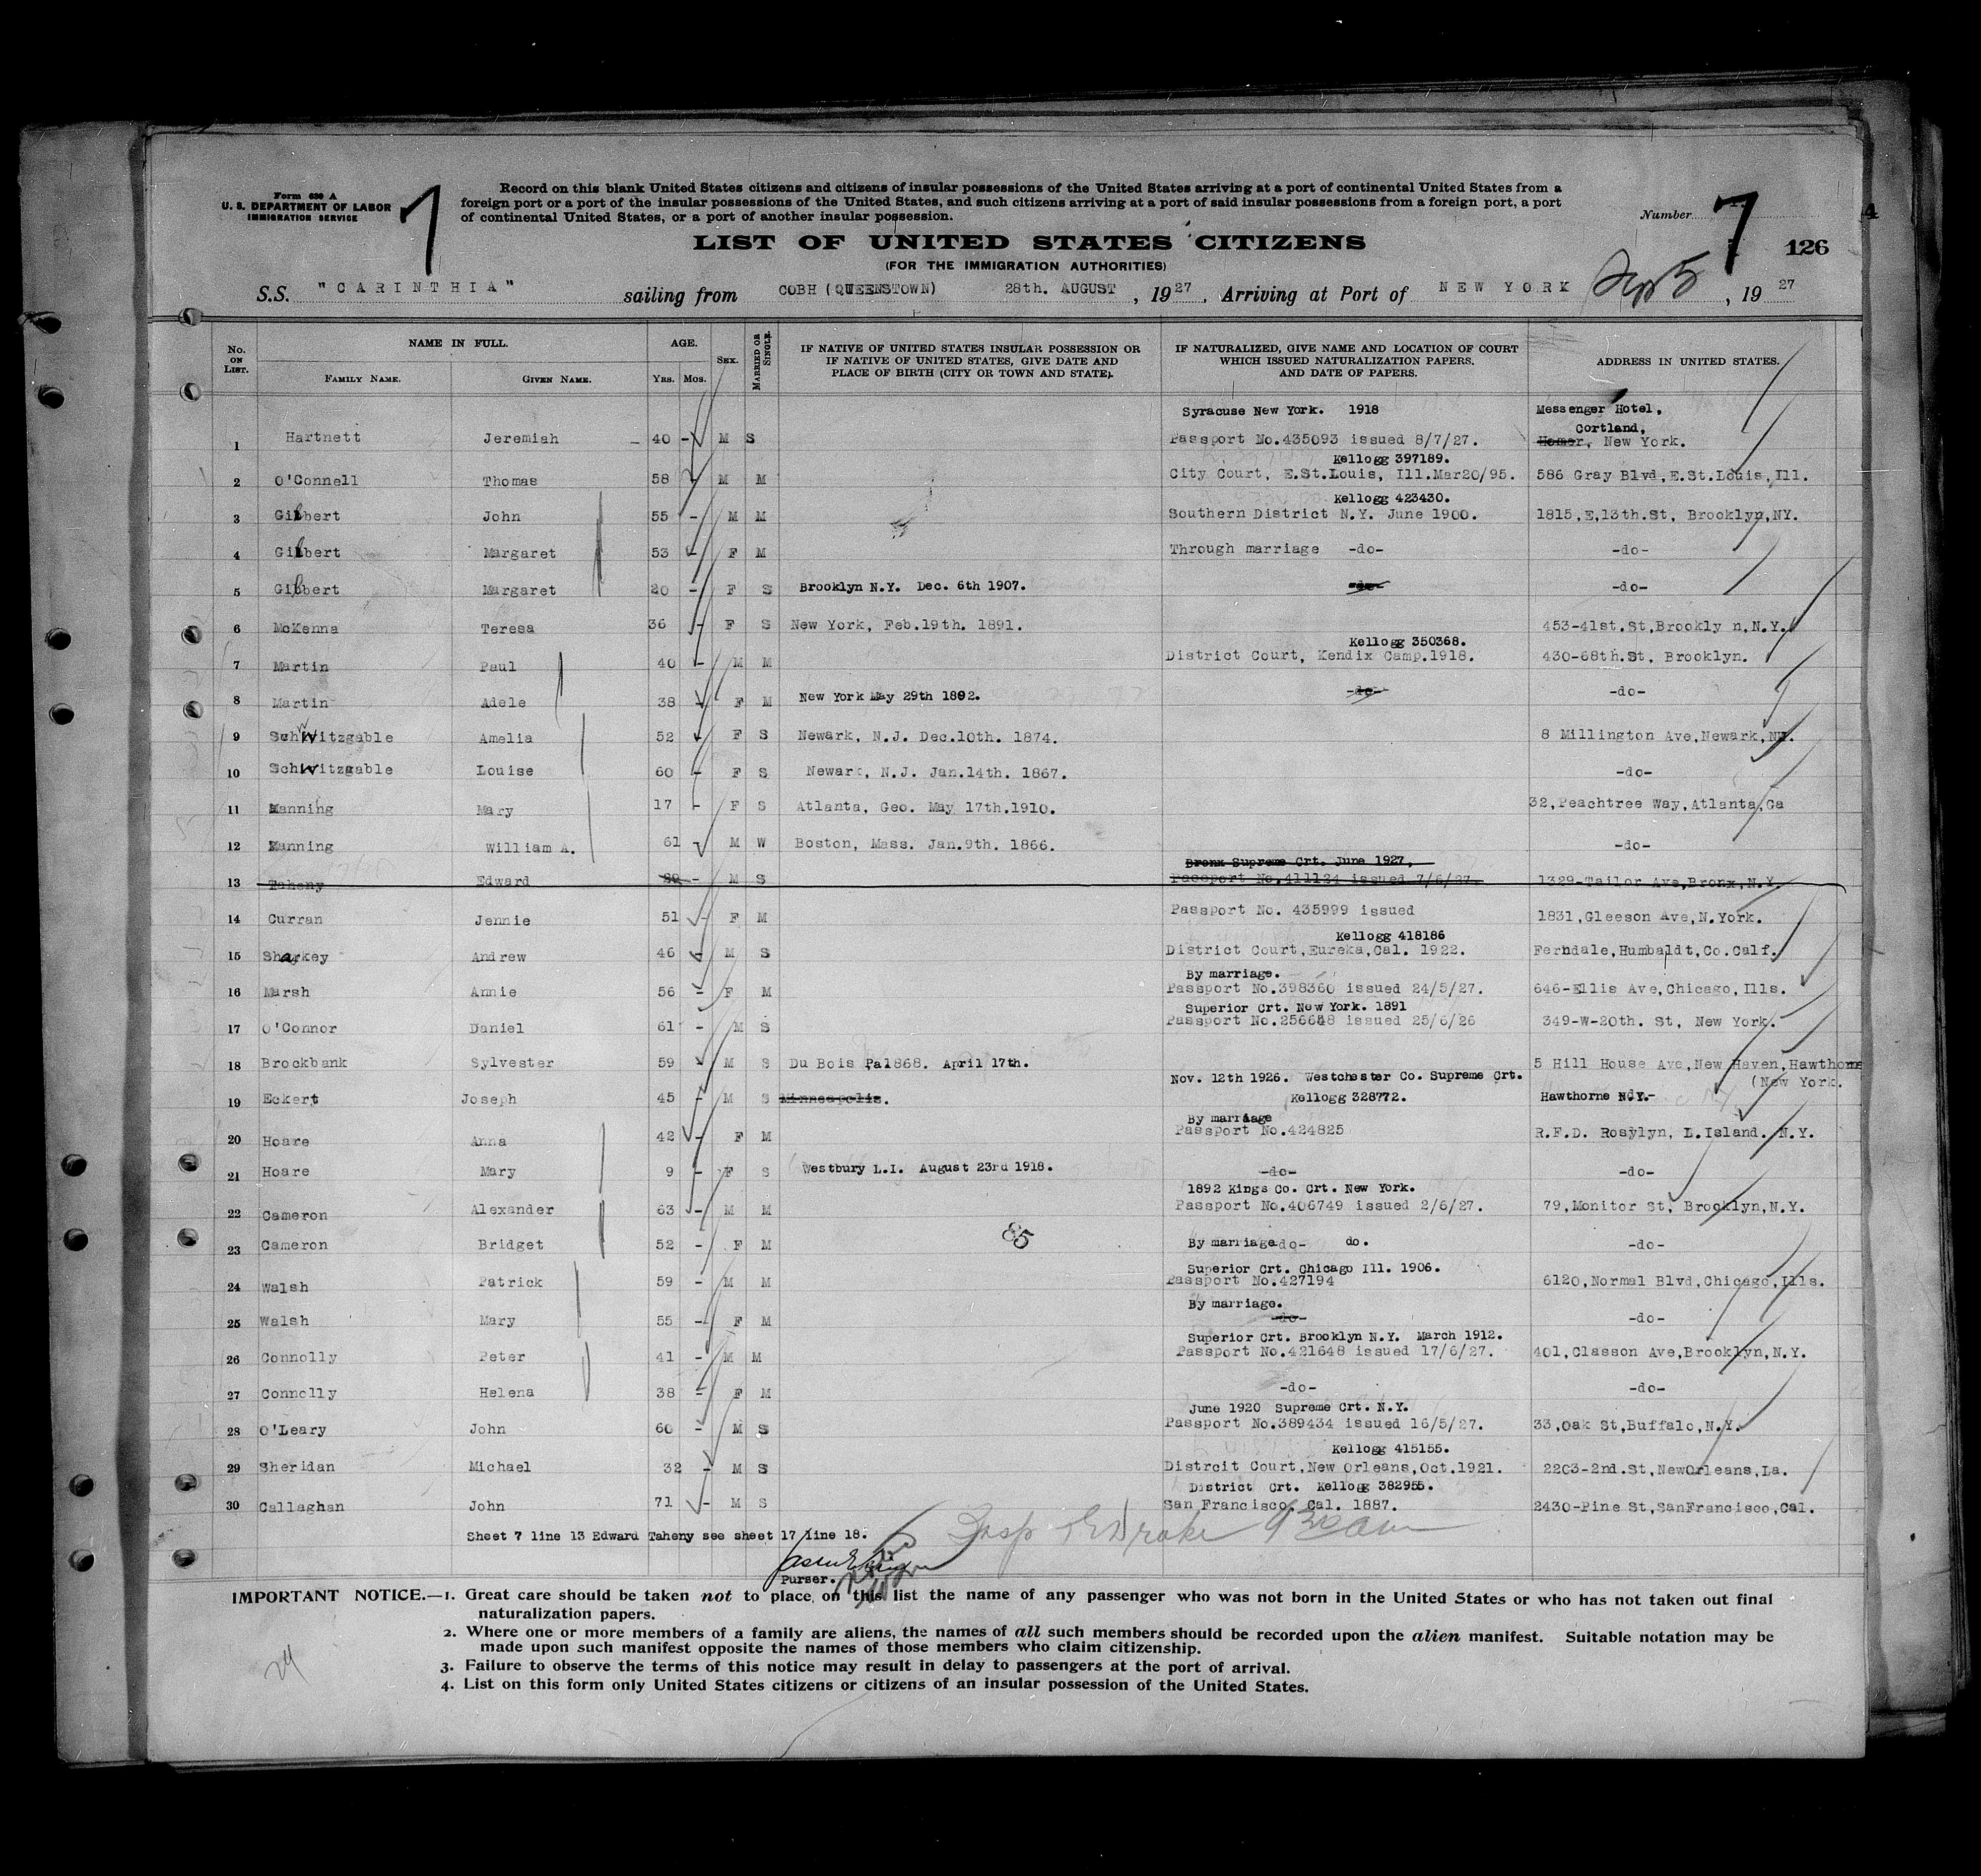 Form 630 A
U. S. DEPARTMENT OF LABOR
IMMIGRATION SERVICE
7
Record on this blank United States citizens and citizens of insular possessions of the United States arriving at a port of continental United States from a
foreign port or a port of the insular possessions of the United States, and such citizens arriving at a port of said insular possessions from a foreign port, a port
of continental United States, or a port of another insular possession.
Number 7
4
126
LIST OF UNITED STATES CITIZENS
(FOR THE IMMIGRATION AUTHORITIES)
S.S. "CARINTHIA" sailing from COBH (QUEENSTOWN) 28th. AUGUST, 1927. Arriving at Port of NEW YORK Sep 5, 1927
No. ON LIST. NAME IN FULL. AGE. SEX. MARRIED OR SINGLE. IF NATIVE OF UNITED STATES INSULAR POSSESSION OR IF NATIVE OF UNITED STATES, GIVE DATE AND PLACE OF BIRTH (CITY OR TOWN AND STATE). IF NATURALIZED, GIVE NAME AND LOCATION OF COURT WHICH ISSUED NATURALIZATION PAPERS, AND DATE OF PAPERS. ADDRESS IN UNITED STATES.
FAMILY NAME. GIVEN NAME. YRS. MOS.
Syracuse New York. 1918 Messenger Hotel,
Cortland,
1 Hartnett Jeremiah 40 - M S Passport No.435093 issued 8/7/27. Homer, New York.
Kellogg 397189.
2 O'Connell Thomas 58 - M M City Court, E.St.Louis, Ill.Mar20/95. 586 Gray Blvd,E.St.Louis,Ill.
Kellogg 423430.
3 Gilbert John 55 - M M Southern District N.Y. June 1900. 1815,E,13th.St, Brooklyn,NY.
4 Gilbert Margaret 53 - F M Through marriage -do- -do-
5 Gilbert Margaret 20 - F S Brooklyn N.Y. Dec. 6th 1907. -do- -do-
6 McKenna Teresa 36 - F S New York, Feb.19th. 1891. 453-41st.St,Brookly n,N.Y.
Kellogg 350368.
7 Martin Paul 40 - M M District Court, Kendix Camp.1918. 430-68th.St, Brooklyn.
8 Martin Adele 38 - F M New York May 29th 1892. -do- -do-
9 Schwitzgable Amelia 52 - F S Newark, N.J. Dec.10th. 1874. 8 Millington Ave,Newark,NJ.
10 Schwitzgable Louise 60 - F S Newark, N.J. Jan.14th. 1867. -do-
11 Manning Mary 17 - F S Atlanta, Geo. May 17th.1910. 32,Peachtree Way,Atlanta,Ga
12 Manning William A. 61 - M W Boston, Mass. Jan.9th. 1866. -do-
Bronx Supreme Crt. June 1927.
13 Taheny Edward 29 - M S Passport No.411124 issued 7/6/27. 1329-Tailor Ave,Bronx,N.Y.
14 Curran Jennie 51 - F M Passport No. 435999 issued 1831,Gleeson Ave,N.York.
Kellogg 418186
15 Sharkey Andrew 46 - M S District Court,Eureka,Cal. 1922. Ferndale,Humbaldt,Co.Calf.
By marriage.
16 Marsh Annie 56 - F M Passport No.398360 issued 24/5/27. 646-Ellis Ave,Chicago, Ills.
Superior Crt. New York. 1891
17 O'Connor Daniel 61 - M S Passport No.256648 issued 25/6/26 349-W-20th. St, New York.
18 Brockbank Sylvester 59 - M S Du Bois Pa1868. April 17th. 5 Hill House Ave,New Haven,Hawthorne
Nov. 12th 1926. Westchester Co. Supreme Crt. (New York.
19 Eckert Joseph 45 - M S Minneapolis. Kellogg 328772. Hawthorne N.Y.-
By marriage
20 Hoare Anna 42 - F M Passport No.424825 R.F.D. Roslyn, L.Island. N.Y.
21 Hoare Mary 9 - F S Westbury L.I. August 23rd 1918. -do- -do-
1892 Kings Co. Crt. New York.
22 Cameron Alexander 63 - M M Passport No.406749 issued 2/6/27. 79,Monitor St, Brooklyn,N.Y.
85
23 Cameron Bridget 52 - F M By marriage -do- do. -do-
Superior Crt. Chicago Ill. 1906.
24 Walsh Patrick 59 - M M Passport No.427194 6120,Normal Blvd,Chicago,Ills.
By marriage.
25 Walsh Mary 55 - F M -do- -do-
Superior Crt. Brooklyn N.Y. March 1912.
26 Connolly Peter 41 - M M Passport No.421648 issued 17/6/27. 401,Classon Ave,Brooklyn,N.Y.
27 Connolly Helena 38 - F M -do- -do-
June 1920 Supreme Crt. N.Y.
28 O'Leary John 60 - M S Passport No.389434 issued 16/5/27. 33,Oak St,Buffalo,N.Y.
Kellogg 415155.
29 Sheridan Michael 32 - M S Distrcit Court,New Orleans,Oct.1921. 2203-2nd.St,NewOrleans,La.
District Crt. Kellogg 382955.
30 Callaghan John 71 - M S San Francisco, Cal. 1887. 2430-Pine St,SanFrancisco,Cal.
Sheet 7 line 13 Edward Taheny see sheet 17 line 18.
Insp Drake 9 30 am
Purser.
IMPORTANT NOTICE.—1. Great care should be taken not to place on this list the name of any passenger who was not born in the United States or who has not taken out final
naturalization papers.
2. Where one or more members of a family are aliens, the names of all such members should be recorded upon the alien manifest. Suitable notation may be
made upon such manifest opposite the names of those members who claim citizenship.
3. Failure to observe the terms of this notice may result in delay to passengers at the port of arrival.
4. List on this form only United States citizens or citizens of an insular possession of the United States.
24